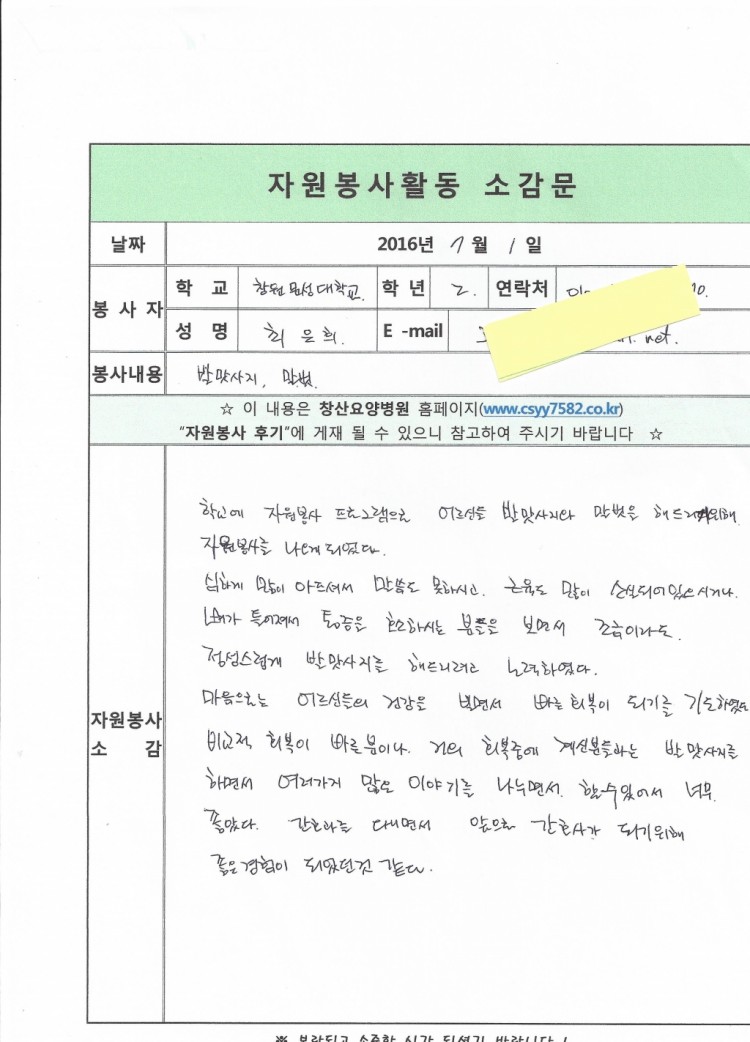 자원봉사활동 소감문
날짜 2016년 7월 1일
봉사자 학 교 창원문성대학교. 학 년 2. 연락처
성 명 최은희. E -mail net.
봉사내용 발맛사지, 말벗.
☆ 이 내용은 창산요양병원 홈페이지(www.csyy7582.co.kr)
"자원봉사 후기"에 게재 될 수 있으니 참고하여 주시기 바랍니다 ☆
자원봉사 소 감
학교에 자원봉사 프로그램으로 어르신들 발맛사지와 말벗을 해드리기위해
자원봉사를 나오게되었다.
심하게 많이 아프셔서 말씀도 못하시고. 근육도 많이 손실되어있으시거나.
뼈가 틀어져서 통증을 호소하시는 분들을 보면서 조금이라도.
정성스럽게 발맛사지를 해드리려고 노력하였다.
마음으로는 어르신들의 건강을 보면서 빠른 회복이 되기를 기도하였고
비교적 회복이 빠른분이나. 거의 회복중에 계신분들과는 발맛사지를
하면서 여러가지 많은 이야기를 나누면서. 할수있어서 너무.
좋았다. 간호과를 다니면서 앞으로 간호사가 되기위해
좋은경험이 되었던것 같다.